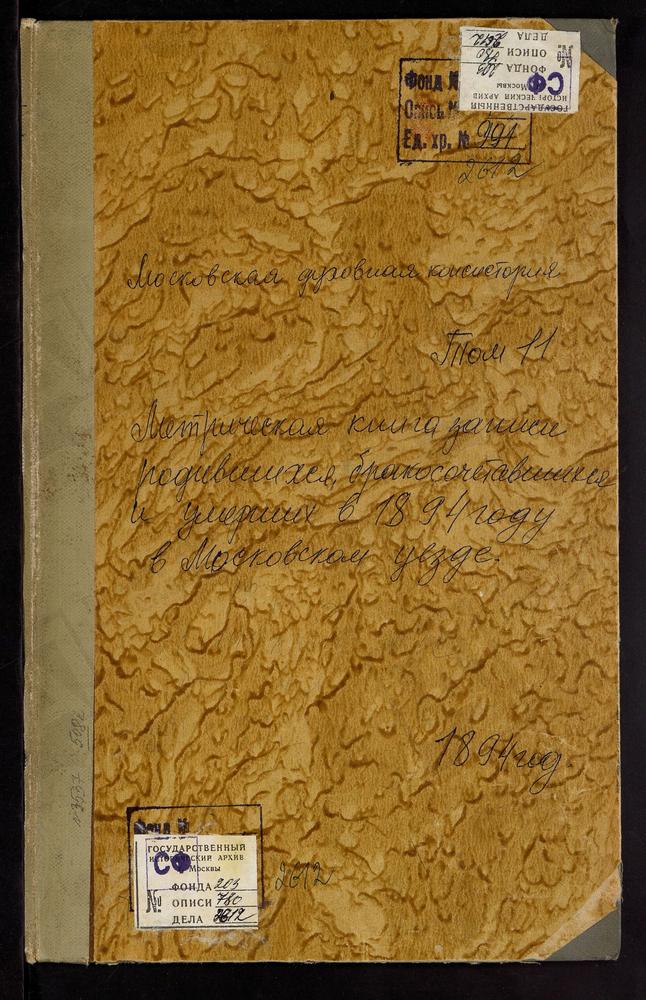 Фонд №
Опись №
Ед. хр. № 991
ГОСУДАРСТВЕННЫЙ
ИСТОРИЧЕСКИЙ АРХИВ
Москвы
СФ
№
ФОНДА 203
ОПИСИ 780
ДЕЛА 2612
2612
Московская духовная консистория
Том 11
Метрическая книга записи
родившихся, бракосочетавшихся
и умерших в 1894 году
в Московском уезде.
1894 год.
Фонд №
ГОСУДАРСТВЕННЫЙ
ИСТОРИЧЕСКИЙ АРХИВ
Москвы
СФ
№
ФОНДА 203
ОПИСИ 780
ДЕЛА 2612
2612